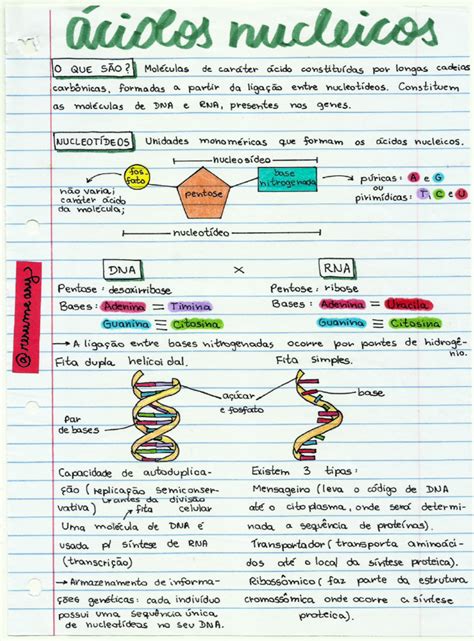 ácidos nucleicos
O QUE SÃO? Moléculas de caráter ácido constituídas por longas cadeias
carbônicas, formadas a partir da ligação entre nucleotídeos. Constituem
as moléculas de DNA e RNA, presentes nos genes.
NUCLEOTÍDEOS Unidades monoméricas que formam os ácidos nucleicos.
nucleosídeo
fos.
fato
pentose
base
nitrogenada
não varia;
caráter ácido
da molécula;
púricas: A e G
ou
pirimídicas: T, C e U
nucleotídeo
DNA × RNA
Pentose: desoxirribose
Bases: Adenina = Timina
Guanina ≡ Citosina
Pentose: ribose
Bases: Adenina = Uracila
Guanina ≡ Citosina
@resumeary
→ A ligação entre bases nitrogenadas ocorre por pontes de hidrogê
nio.
Fita dupla helicoidal.
Fita simples.
açúcar
e fosfato
base
Par
de bases
Capacidade de autoduplica-
ção (replicação semiconser-
vativa) → fita
antes da divisão
celular
Uma molécula de DNA é
usada p/ síntese de RNA
(transcrição)
→ Armazenamento de informa-
ções genéticas: cada indivíduo
possui uma sequência única
de nucleotídeos no seu DNA
Existem 3 tipos:
Mensageiro (leva o código de DNA
até o citoplasma, onde será determi-
nada a sequência de proteínas).
Transportador (transporta aminoáci-
dos até o local da síntese proteica).
Ribossômico (faz parte da estrutura
cromossômica onde ocorre a síntese
proteica).